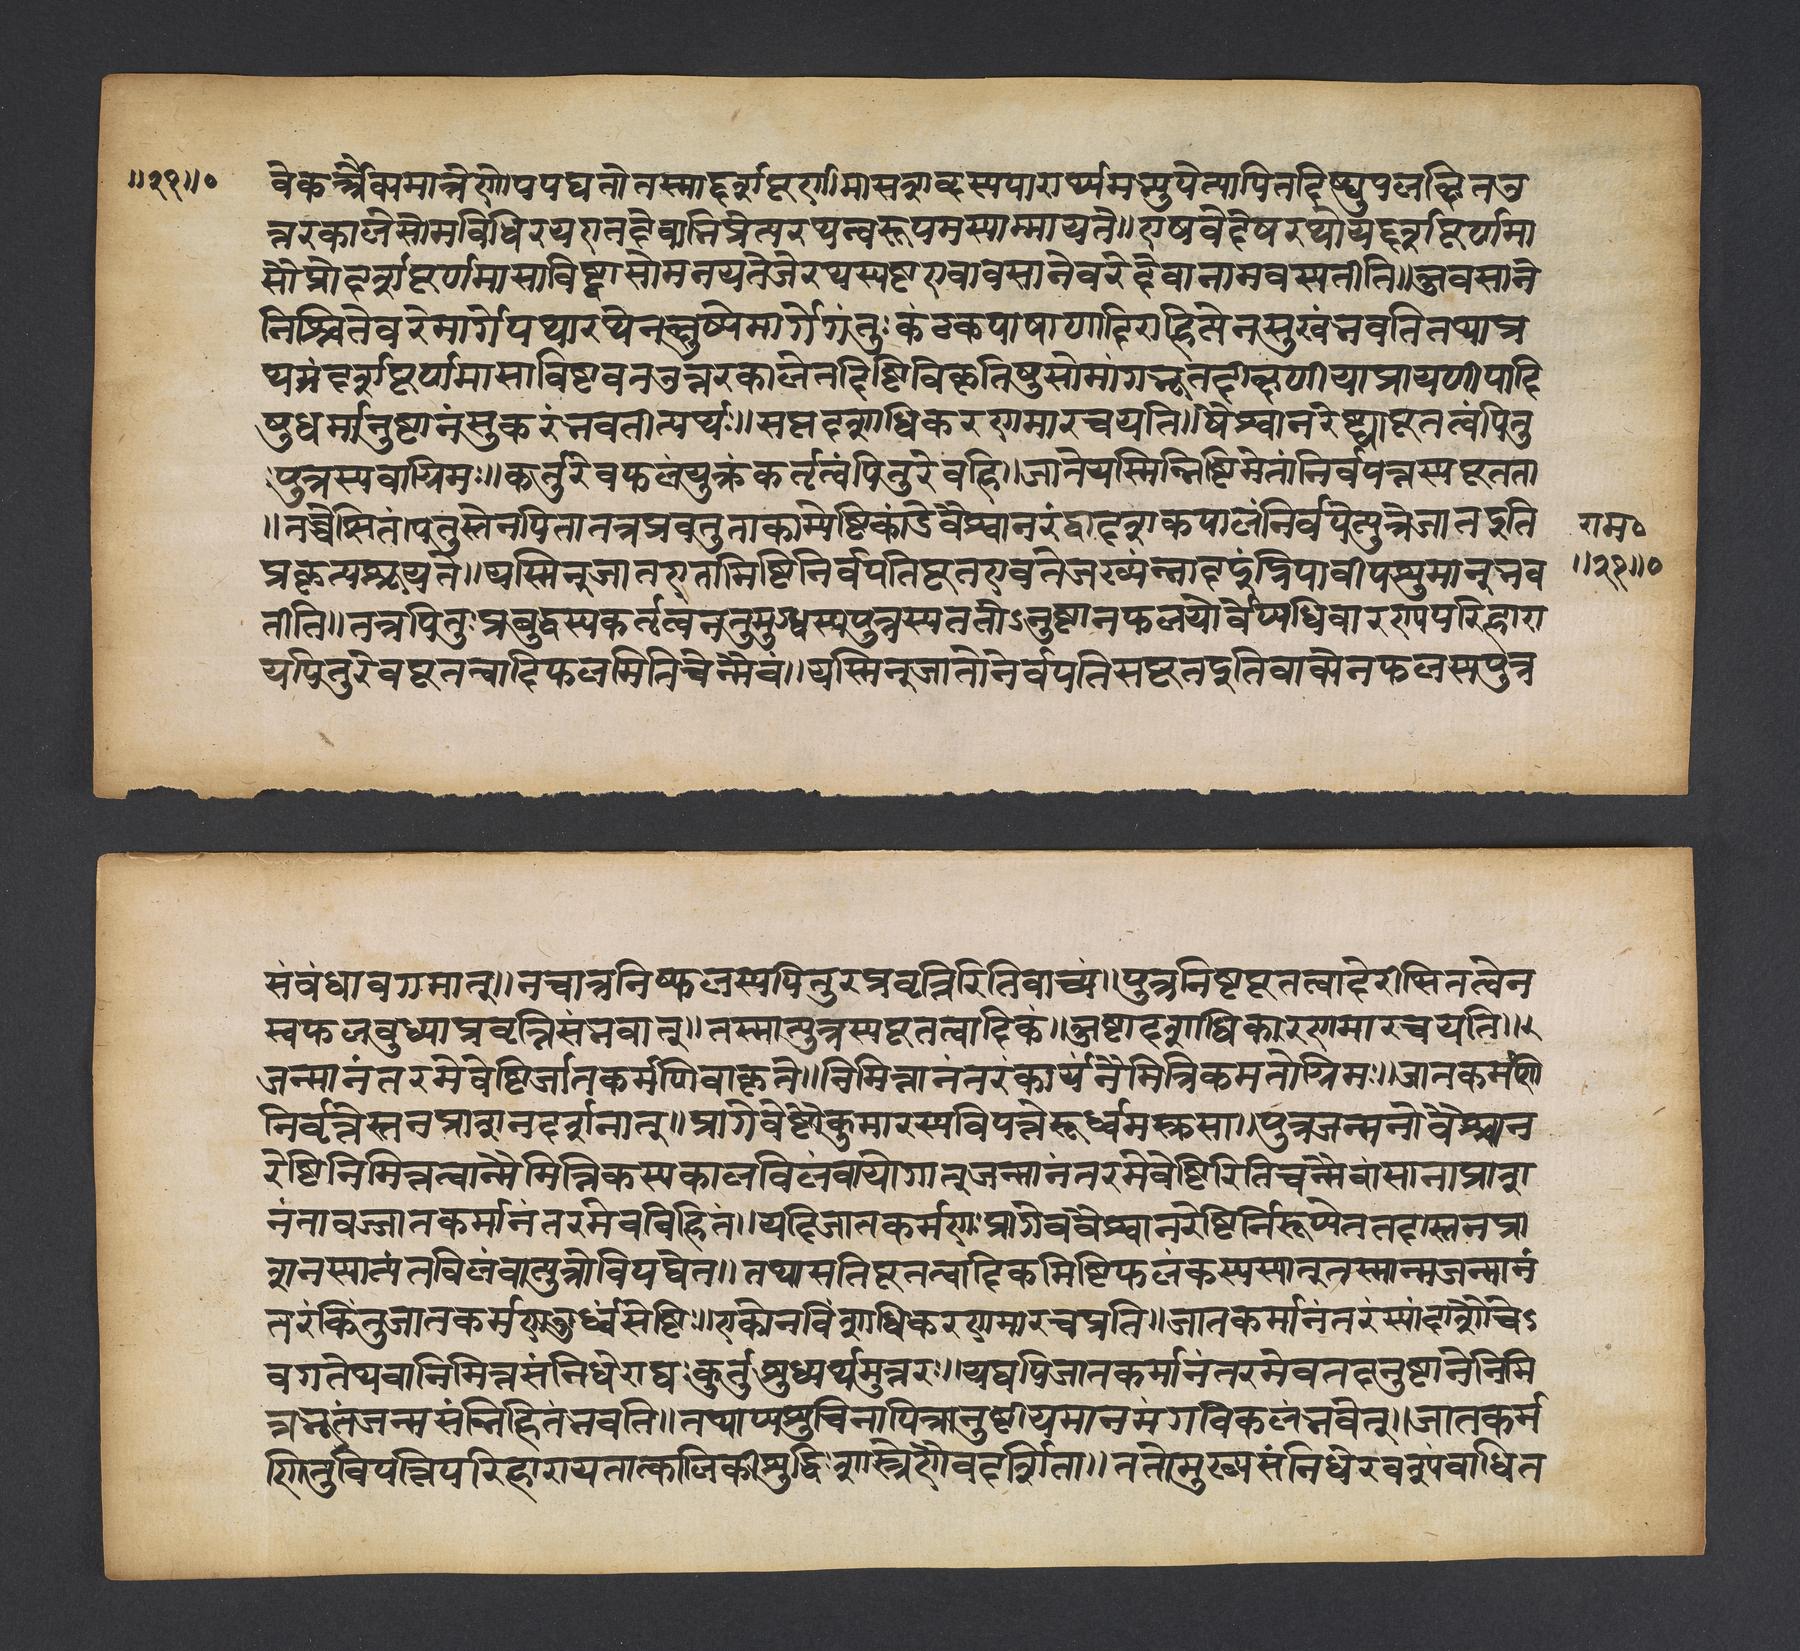 वेकर्त्रैक्यमात्रेणोपपद्यतेतस्माद्दर्शपूर्णमासशब्दस्यपारार्थ्यमभ्युपेत्यापितदिष्ट्युपलक्षितउ
॥२१॥०
त्तरकालेसोमविधिरयएतद्देवानिप्रेत्यरथत्वरूपमस्याम्नायते॥एषवैदेवरथोयद्दर्शपूर्णमा
सौयोदर्शपूर्णमासाविष्ट्वासोमेनयजतेरथस्पष्टएवावसानेवरेदेवानामवस्यतीति॥अवसाने
निश्चितेवरेमार्गेयथारथेनक्षुण्णेमार्गेगंतुःकंटकपाषाणादिराहित्येनसुखंभवतितथाप्र
थमंदर्शपूर्णमासाविष्टवतउत्तरकालेतदिष्टिविकृतिषुसोमांगभूतदीक्षणीयाप्रायणीयादि
षुधर्मानुष्ठानंसुकरंभवतीत्यर्थः॥सप्तदशाधिकरणमारचयति॥वैश्वानरेष्ट्यापूतत्वंपितु
ःपुत्रस्यवाग्रिमः॥कर्तुरेवफलंयुक्तंकर्तृत्वंपितुरेवहि॥जातेयस्मिन्निष्टिमेतांनिर्वपेत्तस्यपूतता
॥तच्चेप्सितंपितुस्तेनपितातत्रप्रवर्तताकाम्येष्टिकांडेवैश्वानरंद्वादशकपालंनिर्वपेत्पुत्रेजातइति
राम०
प्रकृत्यश्रूयते॥यस्मिन्जातएतामिष्टिंनिर्वपतिपूतएवतेजस्व्यन्नादइंद्रियावीपशुमान्भव
॥२१॥०
तीति॥तत्रपितुःप्रबुद्धस्यकर्तृत्वंनतुमुग्धस्यपुत्रस्यततोऽनुष्ठानफलयोर्वैयधिकारण्यपरिहारा
यपितुरेवपूतत्वादिफलमितिचेन्मैवं॥यस्मिन्जातेनिर्वपतिसपूतइतिवाक्येनफलसपुत्र
संबंधावगमात्॥नचात्रनिष्फलस्यपितुरप्रवृत्तिरितिवाच्यं॥पुत्रनिष्ठपूतत्वादेरीप्सितत्वेन
स्वफलबुध्याप्रवृत्तिसंभवात्॥तस्मात्पुत्रस्यपूतत्वादिकं॥अष्टादशाधिकारणमारचयति॥
जन्मानंतरमेवेष्टिर्जातकर्मणिवाकृते॥निमित्तानंतरंकार्यंनैमित्तिकमतोग्रिमः॥जातकर्मणि
निर्वृत्तेस्तनप्राशनदर्शनात्॥प्रागेवेष्टौकुमारस्यविपत्तेरूर्ध्वमस्तुसा॥पुत्रजन्मनोवैश्वान
रेष्टिनिमित्तत्वान्नैमित्तिकस्यकालविलंबायोगात्जन्मानंतरमेवेष्टिरितिचेन्मैवंस्तनप्राश
नंतावज्जातकर्मानंतरमेवविहितं॥यदिजातकर्मणःप्रागेववैश्वानरेष्टिर्निरूप्येततदास्तनप्रा
शनस्यात्यंतविलंबात्पुत्रोविपद्येत॥तथासतिपूतत्वादिकमिष्टिफलंकस्यस्यात्तस्मान्नजन्मानं
तरंकिंतुजातकर्मणऊर्ध्वंसेष्टिः॥एकोनविंशाधिकरणमारचयति॥जातकर्मानंतरंस्यादाशौचे
वगतेथवानिमित्तसंनिधेराद्यःकर्तुःशुध्यर्थमुत्तरः॥यद्यपिजातकर्मानंतरमेवतदनुष्ठानेनिमि
त्तभूतंजन्मसंनिहितंभवति॥तथाप्यशुचिनापित्रानुष्ठीयमानमंगविकलंभवेत्॥जातकर्म
णितुविपत्तिपरिहारायतात्कालिकीशुद्धिःशास्त्रेणैवदर्शिता॥ततोमुख्यसंनिधेरवश्यंबाधित